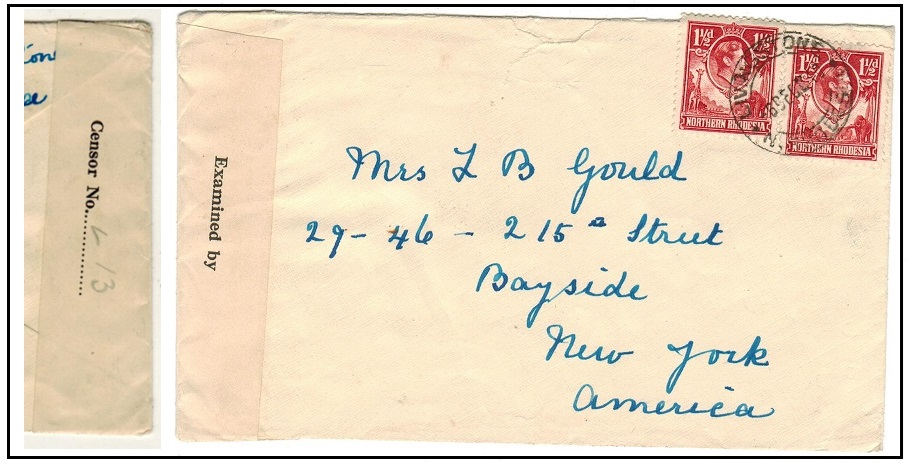 Censor No. L 13
Examined by
1½d 1½d
NORTHERN RHODESIA
1½d 1½d
NORTHERN RHODESIA
Mrs L B Gould
29-46 - 215 a Street
Bayside
New York
America